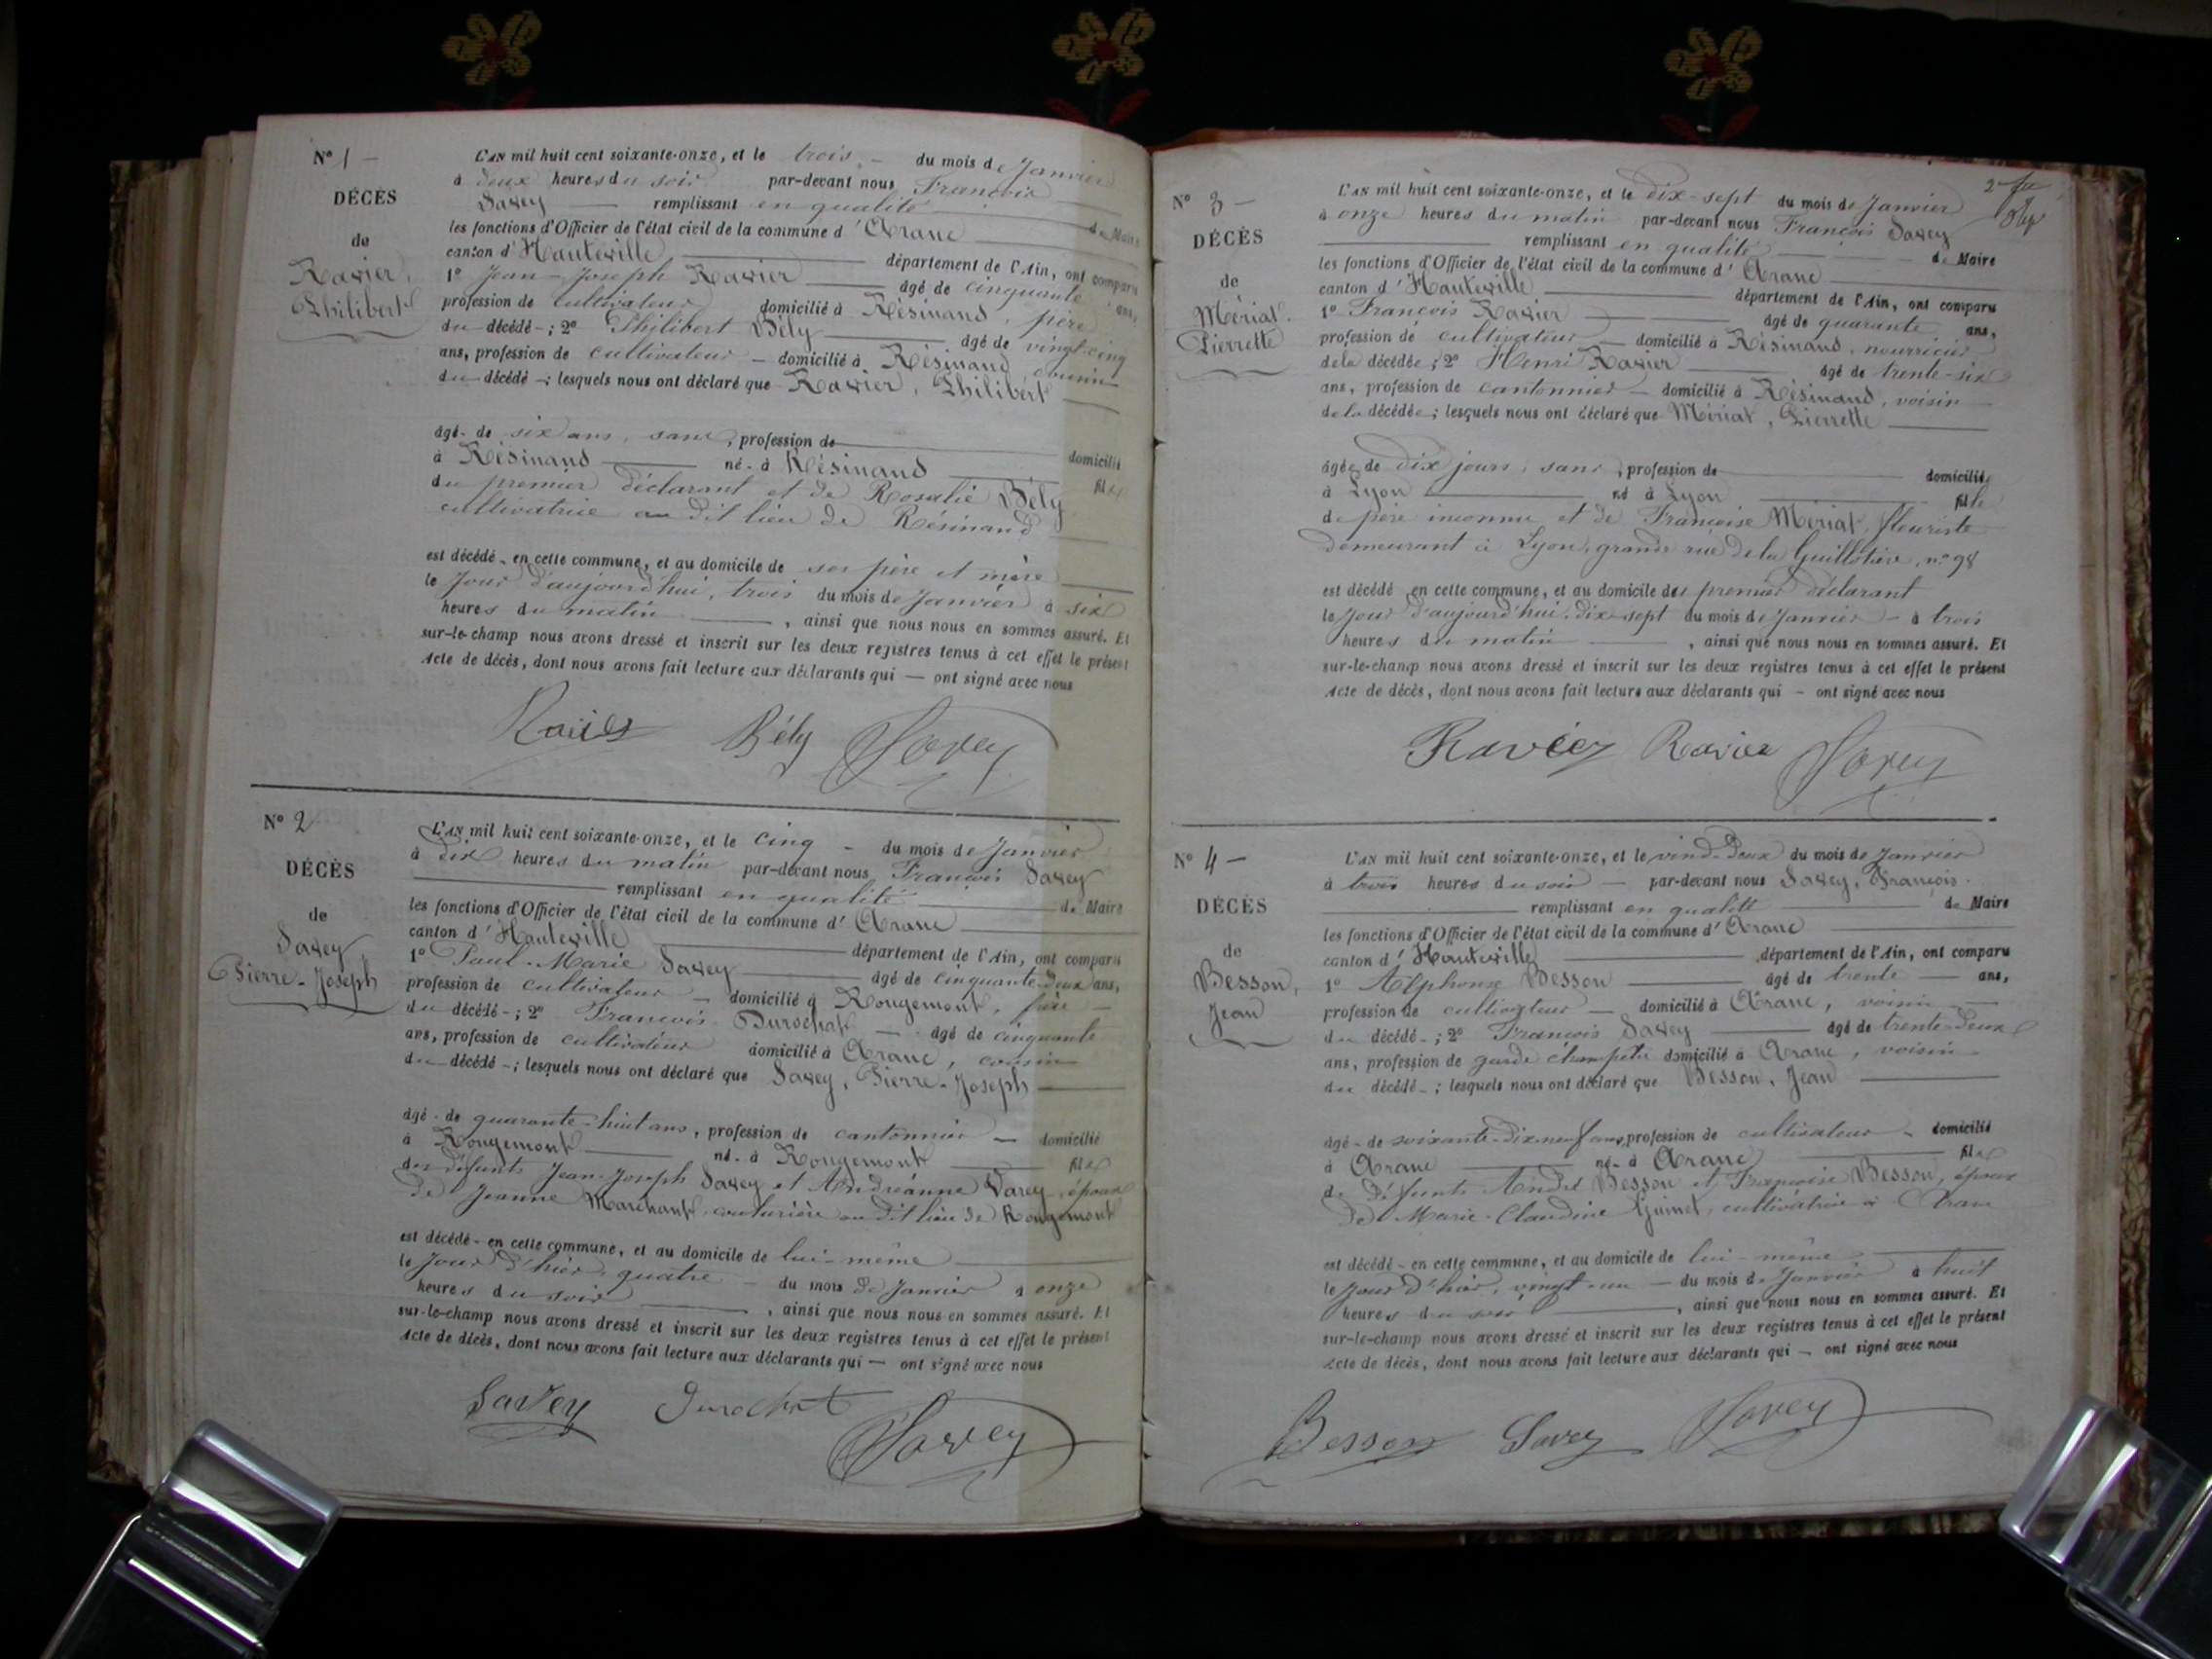 N° 1 —
DÉCÈS
de
Ravier,
Philibert
L'AN mil huit cent soixante-onze, et le trois — du mois de Janvier
à deux heures du soir par-devant nous François
Savey — remplissant en qualité de Maire
les fonctions d'Officier de l'état civil de la commune d'Aranc
canton d'Hauteville département de l'Ain, ont comparu
1° Jean-Joseph Ravier âgé de cinquante ans,
profession de cultivateur domicilié à Résinand, père
du décédé-; 2° Philibert Bély âgé de vingt-cinq
ans, profession de cultivateur — domicilié à Résinand, cousin
du décédé-; lesquels nous ont déclaré que Ravier, Philibert
âgé- de six ans, sans, profession de domicilié
à Résinand né- à Résinand fils
du premier déclarant et de Rosalie Bély
cultivatrice au dit lieu de Résinand
est décédé- en cette commune, et au domicile de ses père et mère
le jour d'aujourd'hui, trois du mois de Janvier à six
heures du matin, ainsi que nous nous en sommes assuré. Et
sur-le-champ nous avons dressé et inscrit sur les deux registres tenus à cet effet le présent
Acte de décès, dont nous avons fait lecture aux déclarants qui — ont signé avec nous
Ravier Bély Savey
N° 2
DÉCÈS
de
Savey
Pierre-Joseph
L'AN mil huit cent soixante-onze, et le cinq — du mois de Janvier
à dix heures du matin par-devant nous François Savey
remplissant en qualité de Maire
les fonctions d'Officier de l'état civil de la commune d'Aranc
canton d'Hauteville département de l'Ain, ont comparu
1° Paul-Marie Savey âgé de cinquante-deux ans,
profession de cultivateur — domicilié à Rougemont, frère —
du décédé-; 2° François Durochat — âgé de cinquante
ans, profession de cultivateur domicilié à Aranc, cousin
du décédé-; lesquels nous ont déclaré que Savey, Pierre-Joseph
âgé- de quarante-huit ans, profession de cantonnier — domicilié
à Rougemont né- à Rougemont fils
des défunts Jean-Joseph Savey et Andréanne Varey, époux
de Jeanne Marchant, couturière au dit lieu de Rougemont
est décédé- en cette commune, et au domicile de lui-même
le jour d'hier, quatre — du mois de Janvier à onze
heures du soir, ainsi que nous nous en sommes assuré. Et
sur-le-champ nous avons dressé et inscrit sur les deux registres tenus à cet effet le présent
Acte de décès, dont nous avons fait lecture aux déclarants qui — ont signé avec nous
Savey Durochat Savey
N° 3 —
DÉCÈS
de
Mériat
Pierrette
L'AN mil huit cent soixante-onze, et le dix-sept du mois de Janvier
à onze heures du matin par-devant nous François Savey
remplissant en qualité de Maire
les fonctions d'Officier de l'état civil de la commune d'Aranc
canton d'Hauteville département de l'Ain, ont comparu
1° François Ravier âgé de quarante ans,
profession de cultivateur — domicilié à Résinand, nourricier
de la décédée; 2° Henri Ravier âgé de trente-six
ans, profession de cantonnier — domicilié à Résinand, voisin
de la décédée; lesquels nous ont déclaré que Mériat, Pierrette
âgée de dix jours, sans, profession de domicilié
à Lyon né à Lyon fille
de père inconnu et de Françoise Mériat, fleuriste
demeurant à Lyon, grande rue de la Guillotière, n° 98
est décédé en cette commune, et au domicile du premier déclarant
le jour d'aujourd'hui, dix-sept du mois de Janvier — à trois
heures du matin, ainsi que nous nous en sommes assuré. Et
sur-le-champ nous avons dressé et inscrit sur les deux registres tenus à cet effet le présent
Acte de décès, dont nous avons fait lecture aux déclarants qui — ont signé avec nous
Ravier Ravier Savey
N° 4 —
DÉCÈS
de
Besson,
Jean
L'AN mil huit cent soixante-onze, et le vind-deux du mois de Janvier
à trois heures du soir — par-devant nous Savey, François
remplissant en qualité de Maire
les fonctions d'Officier de l'état civil de la commune d'Aranc
canton d'Hauteville département de l'Ain, ont comparu
1° Alphonse Besson âgé de trente — ans,
profession de cultivateur — domicilié à Aranc, voisin —
du décédé-; 2° François Savey âgé de trente-deux
ans, profession de garde champêtre domicilié à Aranc, voisin
du décédé-; lesquels nous ont déclaré que Besson, Jean
âgé- de soixante-dix neuf ans, profession de cultivateur — domicilié
à Aranc né- à Aranc fils
de défunts André Besson et Françoise Besson, époux
de Marie-Claudine Guinet, cultivatrice à Aranc
est décédé- en cette commune, et au domicile de lui-même
le jour d'hier, vingt-un — du mois de Janvier à huit
heures du soir, ainsi que nous nous en sommes assuré. Et
sur-le-champ nous avons dressé et inscrit sur les deux registres tenus à cet effet le présent
Acte de décès, dont nous avons fait lecture aux déclarants qui — ont signé avec nous
Besson Savey Savey